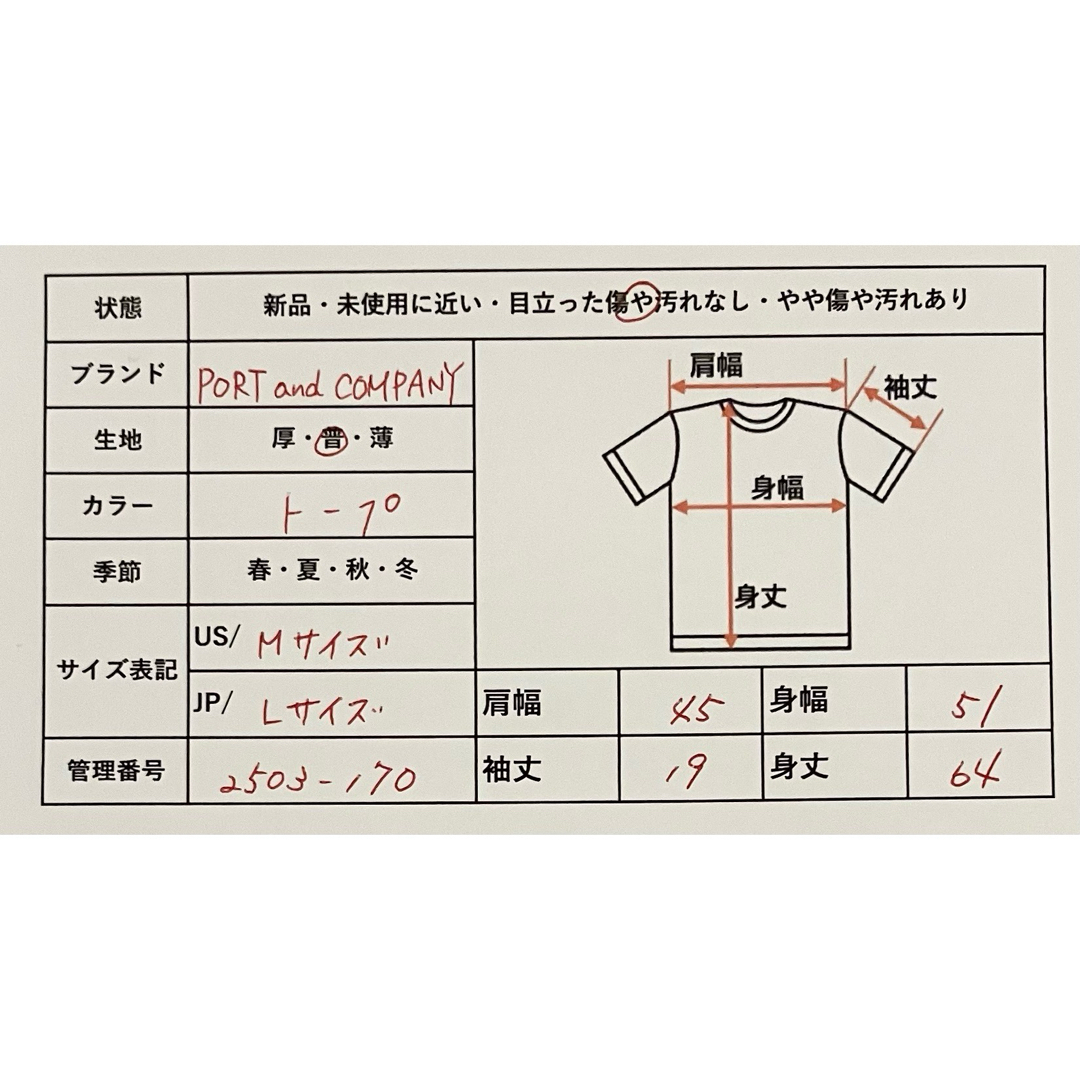 状態 新品・未使用に近い・目立った傷や汚れなし・やや傷や汚れあり
ブランド PORT and COMPANY
生地 厚・普・薄
カラー トープ
季節 春・夏・秋・冬
サイズ表記 US/ Mサイズ
JP/ Lサイズ
管理番号 2503-170
肩幅
袖丈
身幅
身丈
肩幅 45 身幅 51
袖丈 19 身丈 64